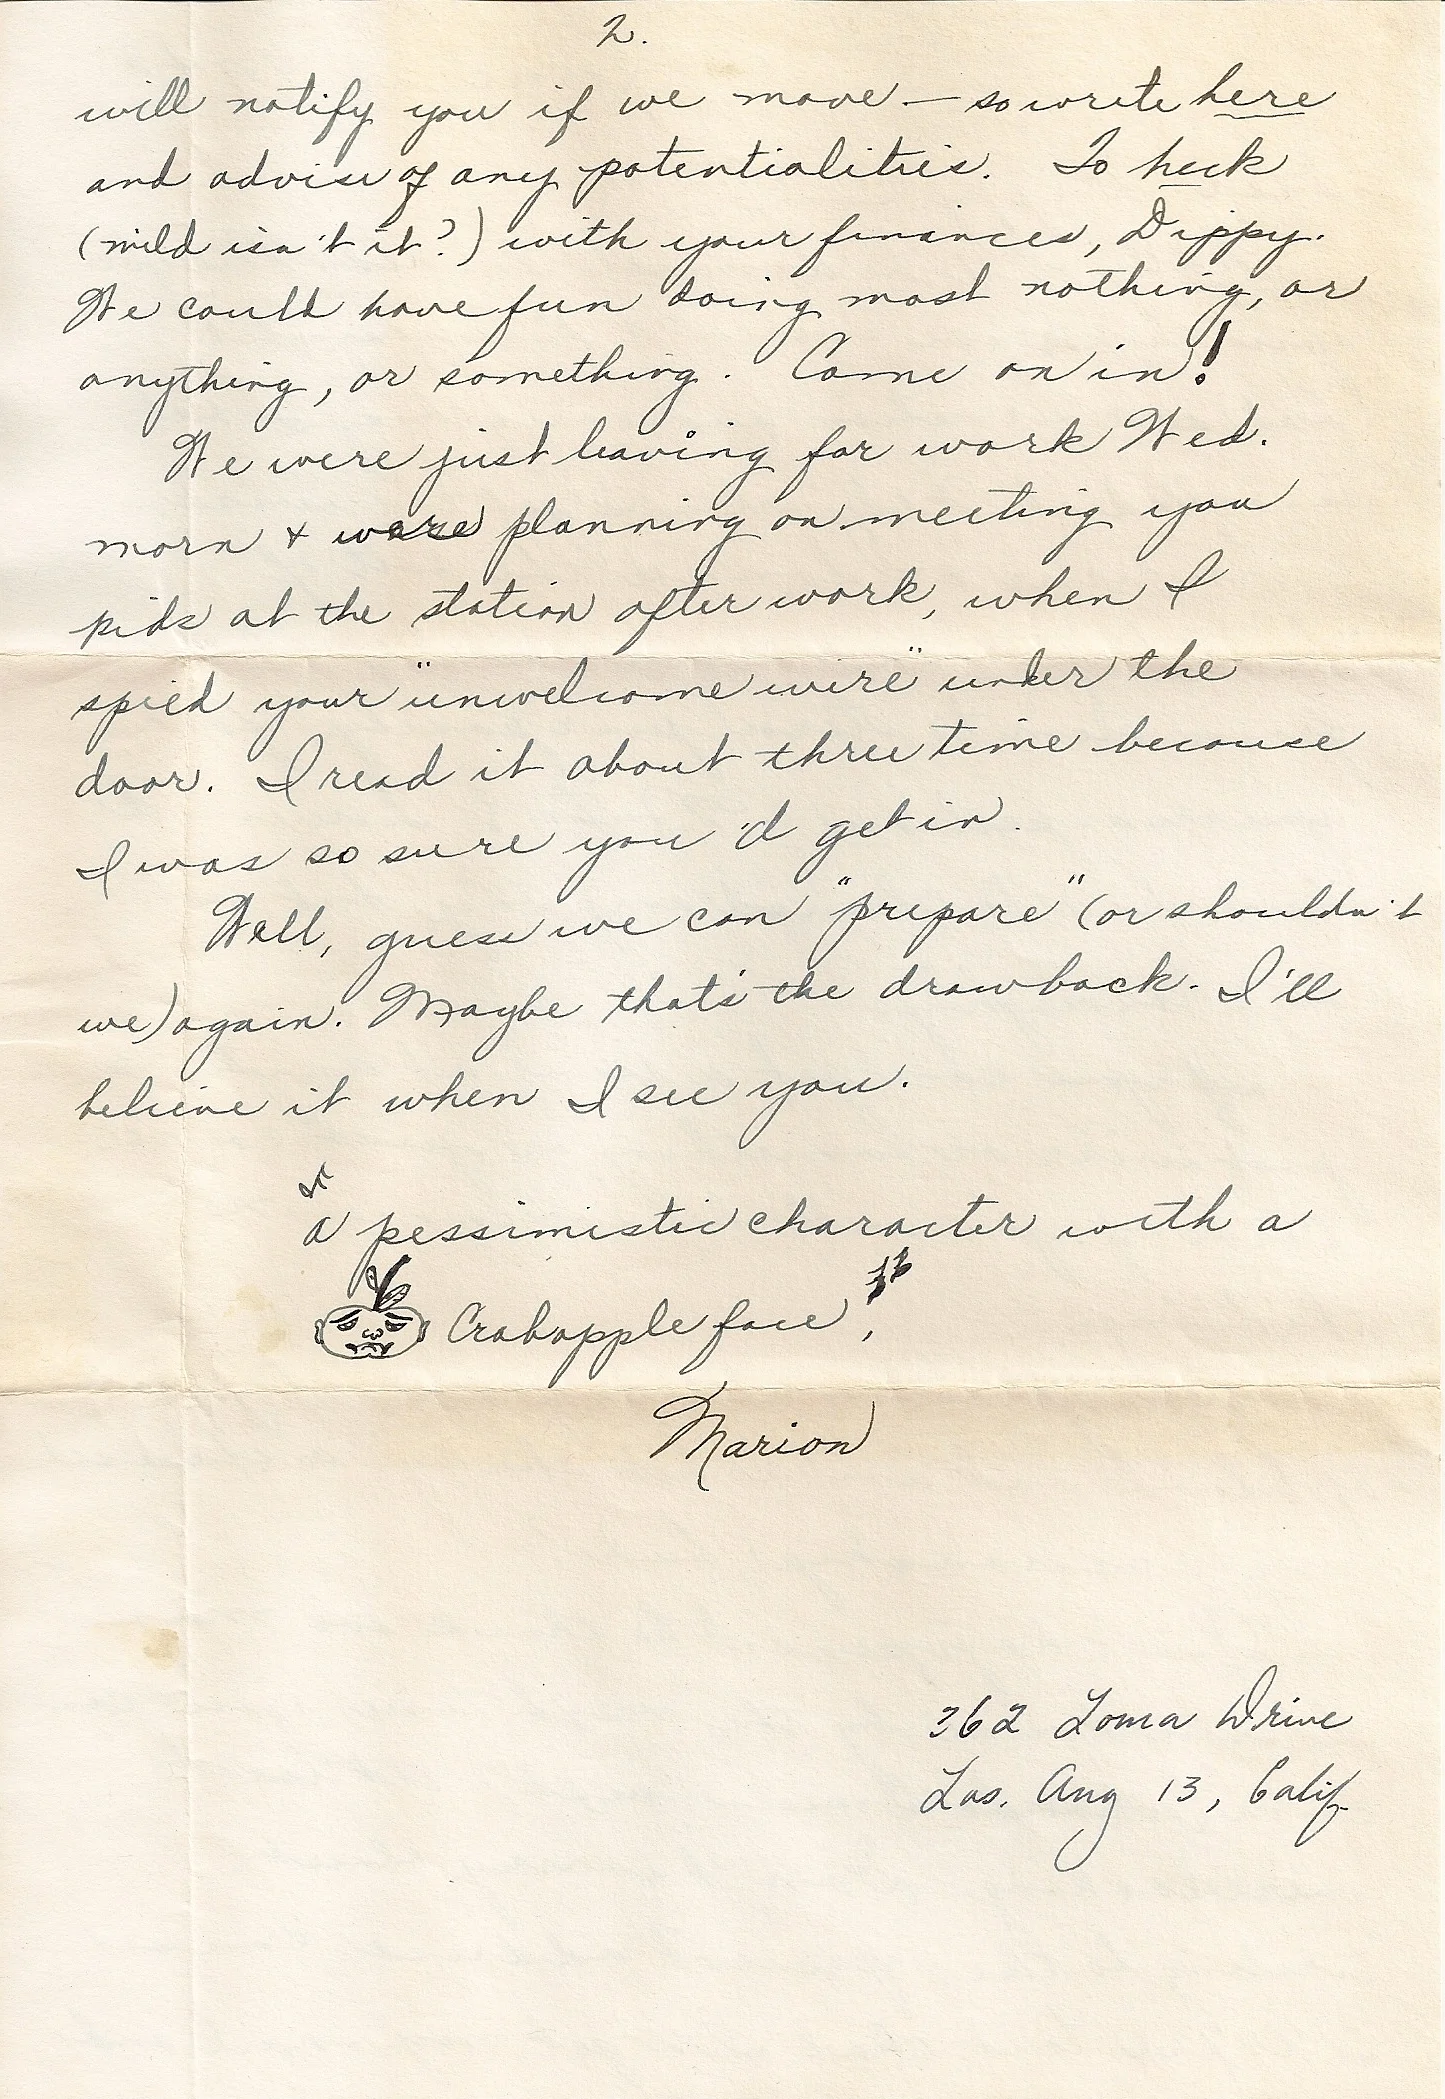 2.
will notify you if we move — so write here
and advise of any potentialities. To heck
(mild isn't it?) with your finances, Dippy.
We could have fun doing most nothing, or
anything, or something. Come on in!
We were just leaving for work Wed.
morn + were planning on meeting you
kids at the station after work, when I
spied your "unwelcome wire" under the
door. I read it about three time because
I was so sure you'd get in.
Well, guess we can "prepare" (or shouldn't
we) again. Maybe that's the drawback. I'll
believe it when I see you.
a pessimistic character with a
Crabapple face,
Marion
362 Loma Drive
Los. Ang 13, Calif